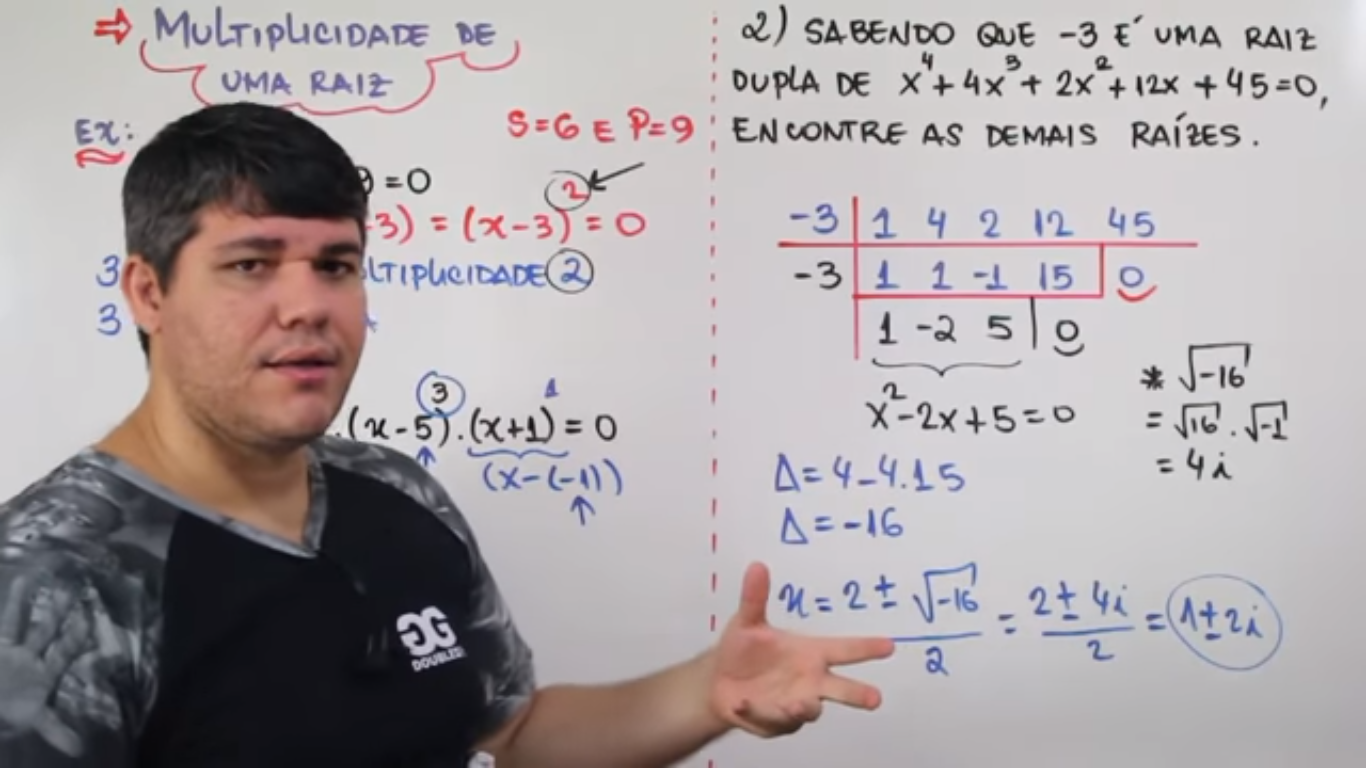 ⇒ MULTIPLICIDADE DE
UMA RAIZ
EX:
S=6 E P=9
9=0
-3) = (x-3)² = 0
3 LTIPLICIDADE 2
3
.(x-5)³.(x+1)¹=0
(x-(-1))
GG
DOUBLE
2) SABENDO QUE -3 É UMA RAIZ
DUPLA DE x⁴+4x³+2x²+12x+45=0,
ENCONTRE AS DEMAIS RAÍZES.
-3 | 1 4 2 12 45
-3 | 1 1 -1 15 | 0
1 -2 5 | 0
x²-2x+5=0
* √-16
= √16 . √-1
= 4i
Δ=4-4.1.5
Δ=-16
x = 2 ± √-16 / 2 = 2 ± 4i / 2 = 1±2i